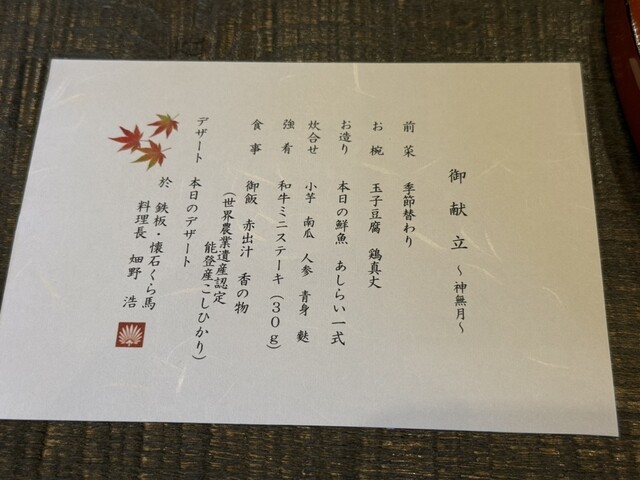 御献立 ～神無月～
前菜 季節替わり
お椀 玉子豆腐 鶏真丈
お造り 本日の鮮魚 あしらい一式
炊合せ 小芋 南瓜 人参 青身 麩
強肴 和牛ミニステーキ(30g)
食事 御飯 赤出汁 香の物
(世界農業遺産認定
能登産こしひかり)
デザート 本日のデザート
於 鉄板・懐石くら馬
料理長 畑野 浩